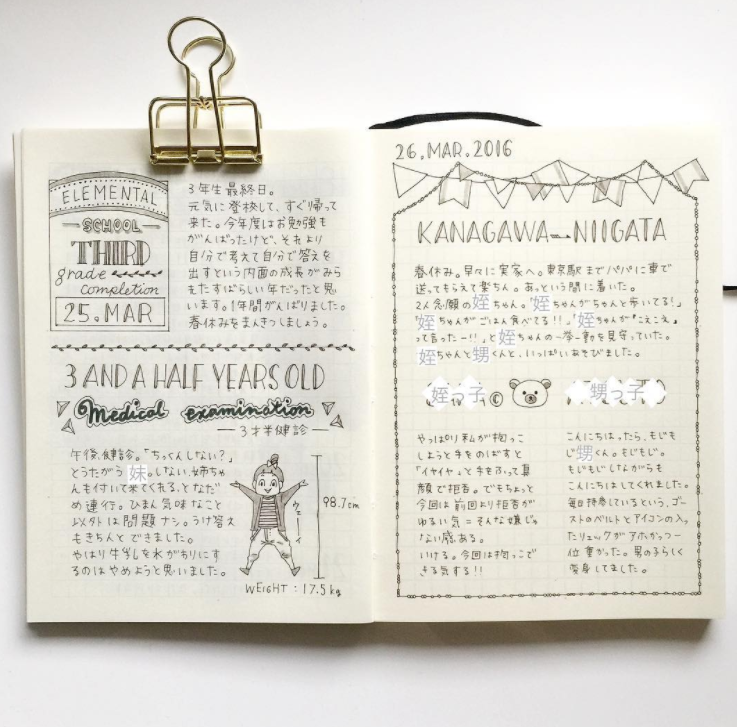 ELEMENTAL
SCHOOL
THIRD
grade
completion
25.MAR
3年生最終日。
元気に登校して、すぐ帰って
来た。今年度はお勉強も
がんばったけど、それより
自分で考えて自分で答えを
出すという内面の成長がみら
れたすばらしい年だったと思
います。1年間がんばりました。
春休みをまんきつしましょう。
3 AND A HALF YEARS OLD
Medical examination
3才半健診
午後、健診。「ちっくんしない?」
とうたがう妹。しない、姉ちゃ
んも付いて来てくれる、となだ
め連行。ひまん気味なこと
以外は問題ナシ。うけ答え
もきちんとできました。
やはり牛乳を水がわりにす
るのはやめようと思いました。
ウェーイ
98.7cm
WEIGHT:17.5kg
26.MAR.2016
KANAGAWA NIIGATA
春休み。早々に実家へ。東京駅までパパに車で
送ってもらえて楽ちん。あっという間に着いた。
2人念願の姪ちゃん。「姪ちゃんがちゃんと歩いてる!」
「姪ちゃんがごはん食べてる!!」「姪ちゃんが"こえこえ"
って言ったー!!」と姪ちゃんの一挙一動を見守っていた。
姪ちゃんと甥くんと、いっぱいあそびました。
姪っ子
甥っ子
やっぱり私が抱っこ
しようと手をのばすと
「イヤイヤ」と手をふって真
顔で拒否。でもちょっと
今回は前回より拒否が
ゆるい気=そんな嫌じゃ
ない感ある。
いける。今回は抱っこで
きる気する!!
こんにちはったら、もじも
じ甥くん。もじもじ。
もじもじしながらも
こんにちはしてくれました。
毎日持参しているという、ゴー
ストのベルトとアイコンの入っ
たリュックがアホかっつー
位重かった。男の子らしく
変身してました。